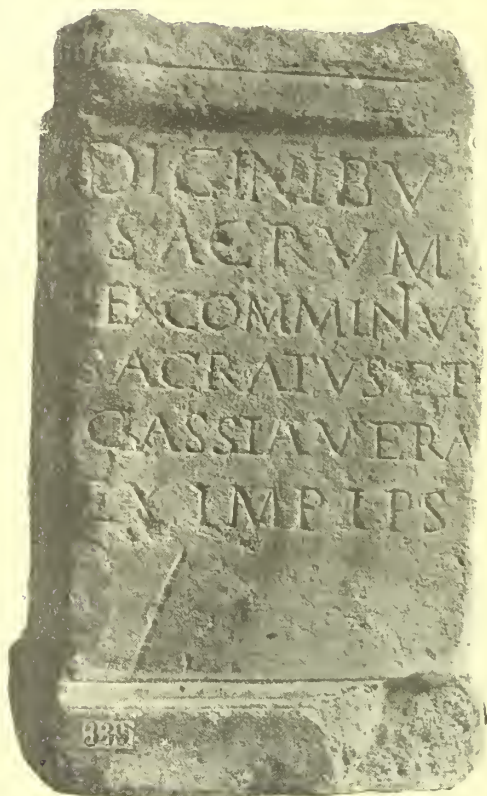 DIGINIBV
SACRVM
SEXCOMMINIVS
SACRATVS ET
CASSIA VERA
EX IMP IPS
889